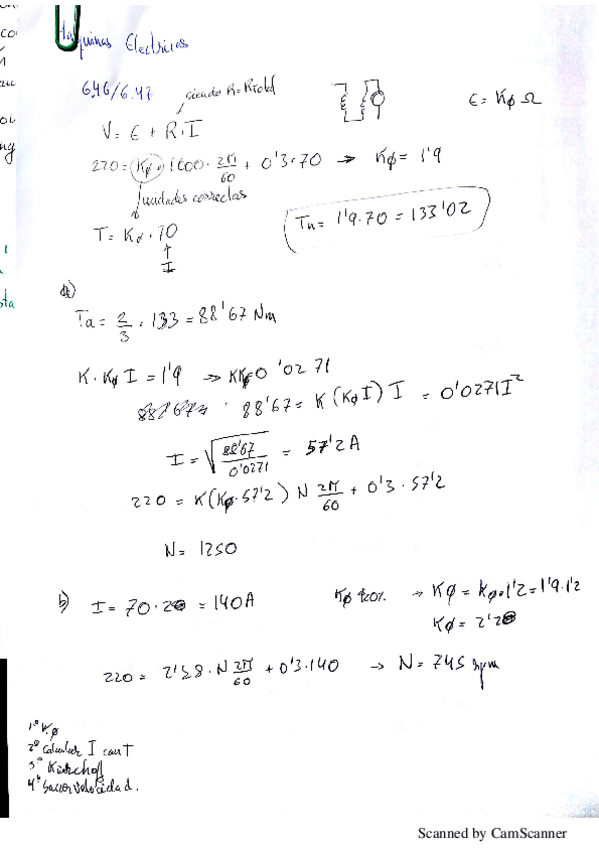 Máquinas Electricas
6.46/6.47
siendo R = Rtotal
E = Kφ Ω
V = E + R · I
220 = Kφ · 1000 · 2π/60 + 0'3 · 70 → Kφ = 1'9
unidades correctas
T = Kφ · 70
I
Tn = 1'9 · 70 = 133'02
a)
Ta = 2/3 · 133 = 88'67 Nm
K · Kφ I = 1'9 → KKφ 0'0271
88'67 = K (Kφ I) I = 0'0271 I²
I = √(88'67/0'0271) = 57'2 A
220 = K(Kφ · 57'2) N 2π/60 + 0'3 · 57'2
N = 1250
b) I = 70 · 2 = 140A
Kφ 20% → Kφ = Kφ · 1'2 = 1'9 · 1'2
Kφ = 2'28
220 = 2'28 · N 2π/60 + 0'3 · 140 → N = 745 rpm
1º Kφ
2º Calcular I con T
3º Kirchoff
4º Sacar velocidad.
Scanned by CamScanner